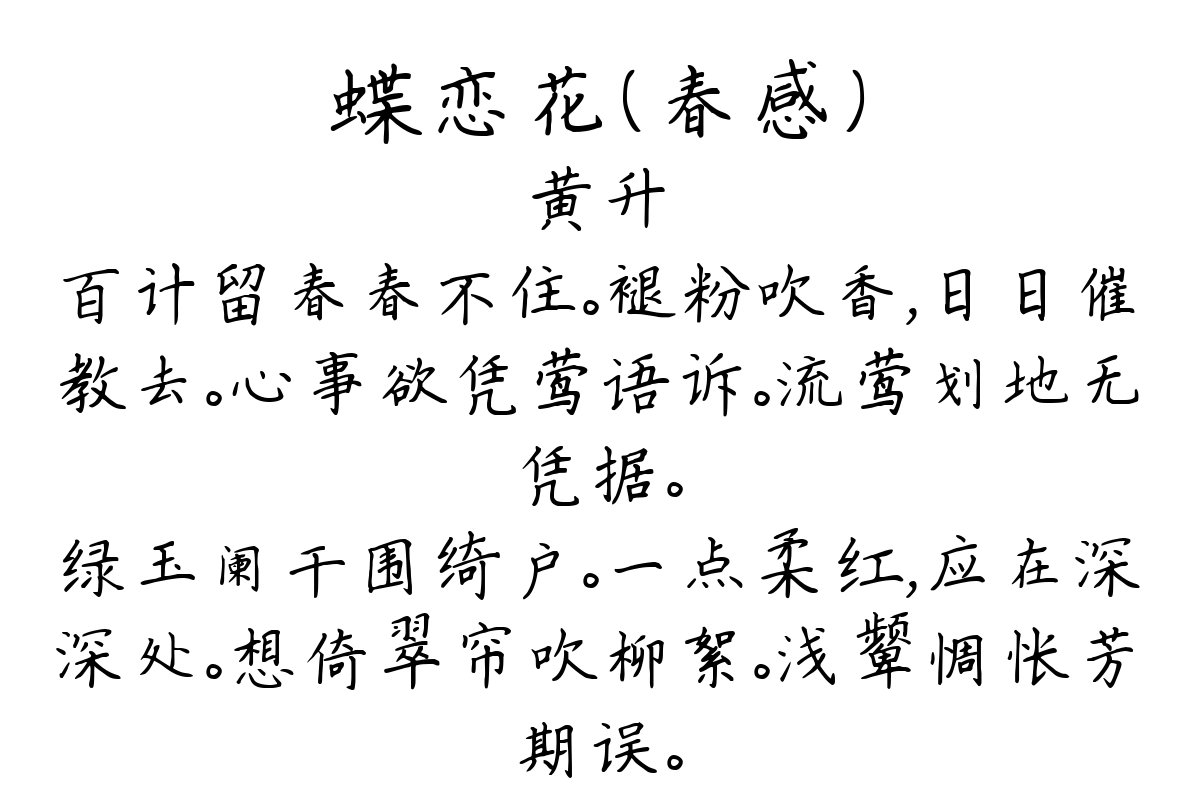 蝶恋花(春感)
黄升
百计留春春不住。褪粉吹香,日日催
教去。心事欲凭莺语诉。流莺划地无
凭据。
绿玉阑干围绮户。一点柔红,应在深
深处。想倚翠帘吹柳絮。浅颦惆怅芳
期误。